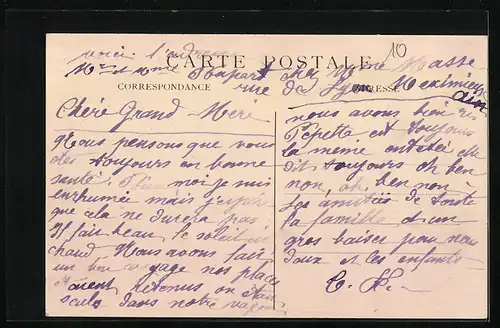 voici l'adresse
Mr et Mme Poupart chez Mme Masse
rue de Lyon Meximieux
Ain
10
CARTE POSTALE
CORRESPONDANCE
ADRESSE
Chère Grand-Mère
Nous pensons que vous
êtes toujours en bonne
santé. moi je suis
enrhumée mais j'espère
que cela ne durera pas
Il fait beau, le soleil est
chaud. Nous avons fait
un bon voyage nos places
étaient retenus on était
seuls dans notre wagon
nous avons bien ri
Pépette est toujours
la même entêtée elle
dit toujours oh ben
non, oh ben non
Les amitiés de toute
la famille et un
gros baiser pour vous
deux et les enfants